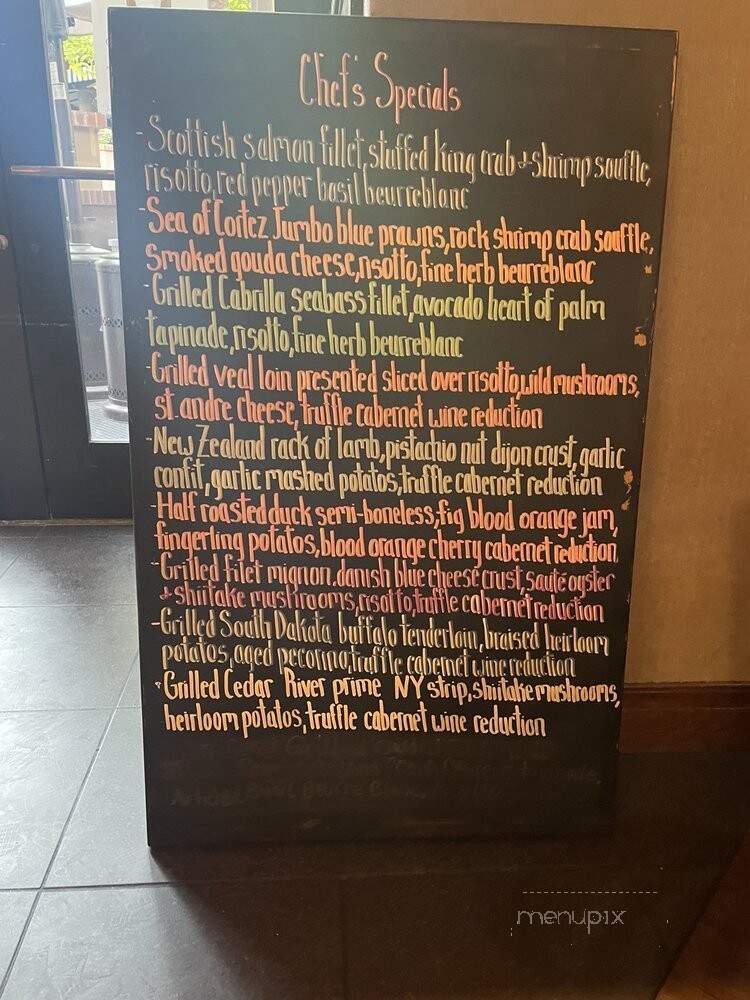 Chef's Specials
-Scottish salmon fillet, stuffed King crab & shrimp souffle,
risotto, red pepper basil beurreblanc
-Sea of Cortez Jumbo blue prawns, rock shrimp crab souffle,
smoked gouda cheese, risotto, fine herb beurreblanc
-Grilled Cabrilla seabass fillet, avocado heart of palm
tapinade, risotto, fine herb beurreblanc
-Grilled veal loin presented sliced over risotto, wild mushrooms,
st. andre cheese, truffle cabernet wine reduction
-New Zealand rack of lamb, pistachio nut dijon crust, garlic
confit, garlic mashed potatos, truffle cabernet reduction
-Half roasted duck semi-boneless, fig blood orange jam,
fingerling potatos, blood orange cherry cabernet reduction
-Grilled filet mignon, danish blue cheese crust sauté oyster
& shiitake mushrooms, risotto, truffle cabernet reduction
-Grilled South Dakota buffalo tenderloin, braised heirloom
potatos, aged pecorino, truffle cabernet wine reduction
-Grilled Cedar River prime NY strip, shiitake mushrooms,
heirloom potatos, truffle cabernet wine reduction
menupix